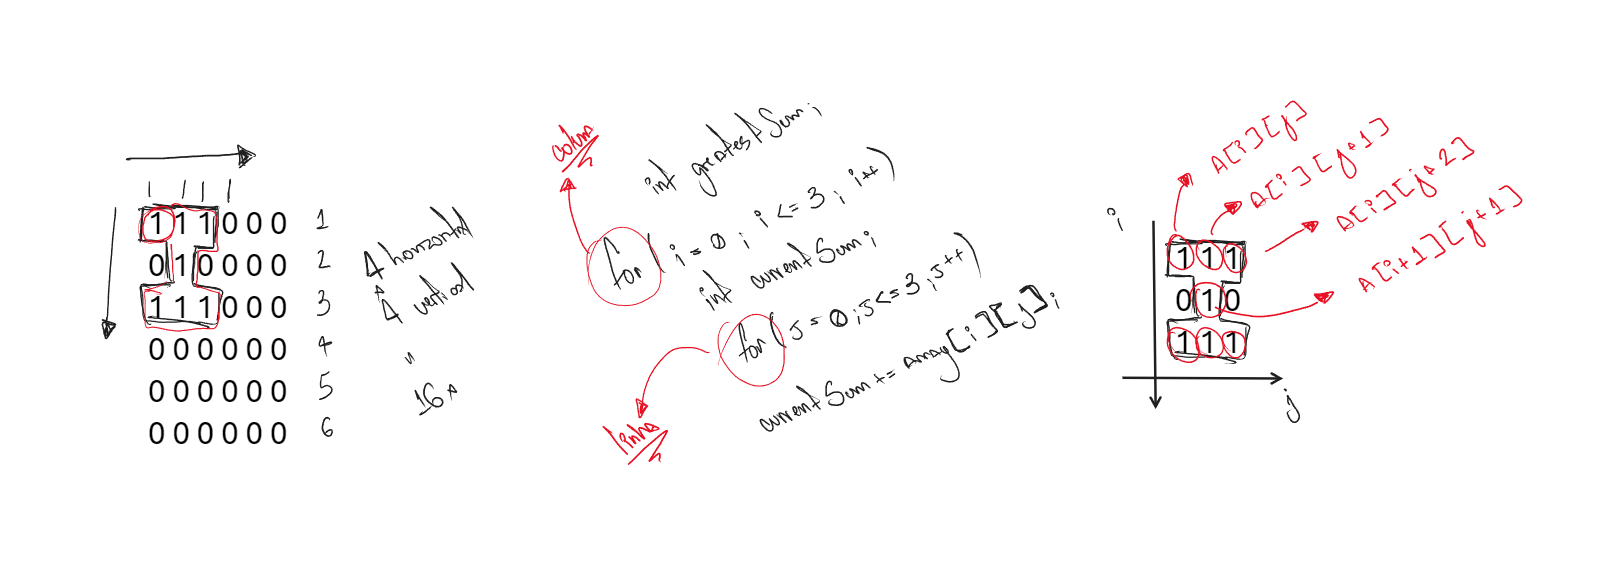 1 1 1 0 0 0 1
0 1 0 0 0 0 2
1 1 1 0 0 0 3
0 0 0 0 0 0 4
0 0 0 0 0 0 5
0 0 0 0 0 0 6
4 horizontal
4 vertical
"
16x
colum
int greatestSum;
for ( i = 0 ; i <= 3 ; i++ )
int currentSum;
for ( J = 0 ; J <= 3 ; J++ )
currentSum += array[i][j];
linha
A[i][j]
A[i][j+1]
A[i][j+2]
A[i+1][j+1]
i
1 1 1
0 1 0
1 1 1
j